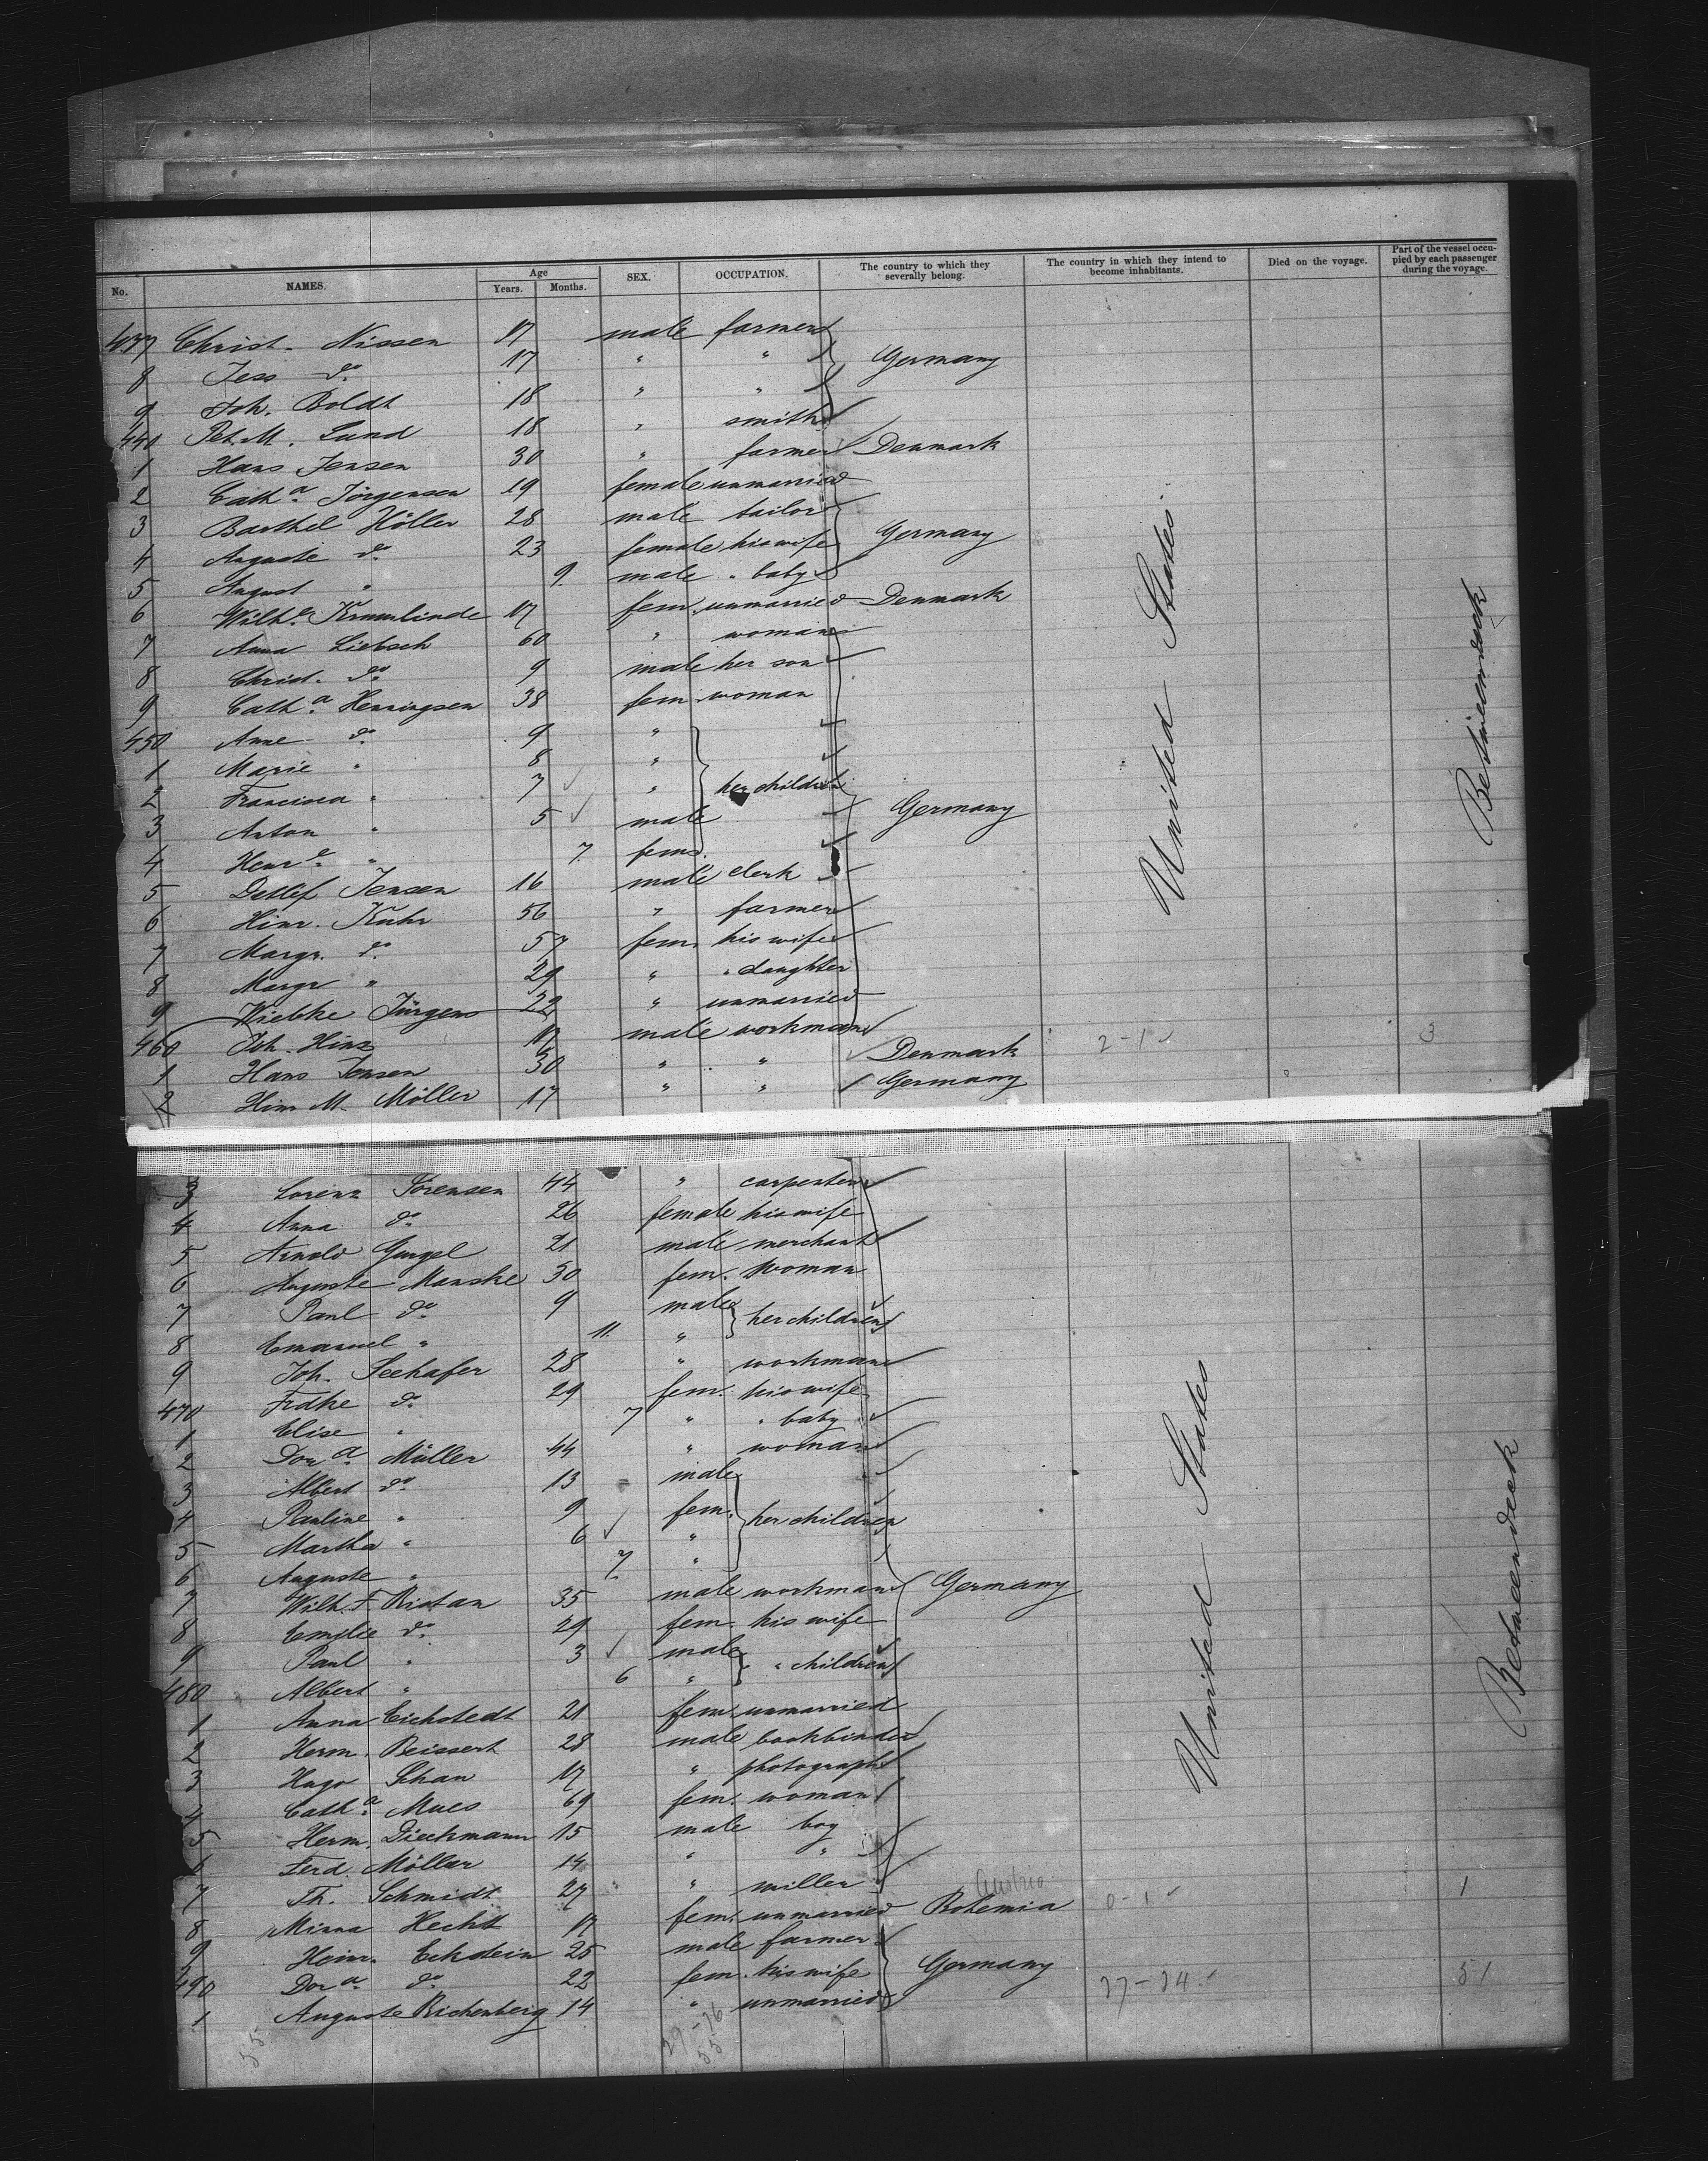 No. NAMES. Age Years. Months. SEX. OCCUPATION. The country to which they severally belong. The country in which they intend to become inhabitants. Died on the voyage. Part of the vessel occupied by each passenger during the voyage.
437 Christ. Nissen 17 male farmer
8 Jess do 17 " " Germany
9 Joh. Boldt 18 " "
440 Pet. M. Lund 18 " smith
1 Hans Jensen 30 " farmer Denmark
2 Catha Jörgensen 19 female unmarried
3 Barthel Höller 28 male tailor
4 Auguste do 23 female his wife Germany
5 August " 9 male " baby
6 Wilhe Krumlinde 17 fem. unmarried Denmark
7 Anna Liebsch 60 " woman
8 Christ. do 9 male her son
9 Catha Henningsen 38 fem. woman
450 Anne do 9 "
1 Marie " 8 "
2 Francisca " 7 " her children
3 Anton " 5 male Germany
4 Henre " 7 fem.
5 Detlef Jensen 16 male clerk
6 Hinr. Kuhr 56 " farmer
7 Margr. do 57 fem. his wife
8 Margr " 29 " " daughter
9 Wiebke Jürgens 22 " unmarried
460 Joh. Hinz 17 male workman
1 Hans Jensen 30 " " Denmark 2-1 3
2 Hinr M. Möller 17 " " Germany
United States
Betweendeck
3 Lorenz Sörensen 44 " carpenter
4 Anna do 26 female his wife
5 Arnold Gurgel 21 male merchant
6 Auguste Manske 30 fem. woman
7 Paul do 9 male her children
8 Emanuel " 11 "
9 Joh. Seehafer 28 " workman
470 Frdke do 29 fem. his wife
1 Elise " 7 " " baby
2 Dora Müller 44 " woman
3 Albert do 13 male
4 Pauline " 9 fem. her children
5 Martha " 6 "
6 Auguste " 7 "
7 Wilh. F. Ristan 35 male workman Germany
8 Emilie do 29 fem. his wife
9 Paul " 3 male " children
480 Albert " 6 "
1 Anna Eichstedt 21 fem. unmarried
2 Herm. Beissert 28 male bookbinder
3 Hugo Schan 17 " photograph
4 Catha Mues 69 fem. woman
5 Herm. Dieckmann 15 male boy
6 Ferd. Möller 14 " "
7 Th. Schmidt 27 " miller Austria 1
8 Minna Hecht 17 fem. unmarried Bohemia 0-1
9 Heinr. Eckstein 25 male farmer
490 Dora do 22 fem. his wife Germany 27-24 51
1 Auguste Richenberg 14 " unmarried
United States
Betweendeck
55 29-26
55